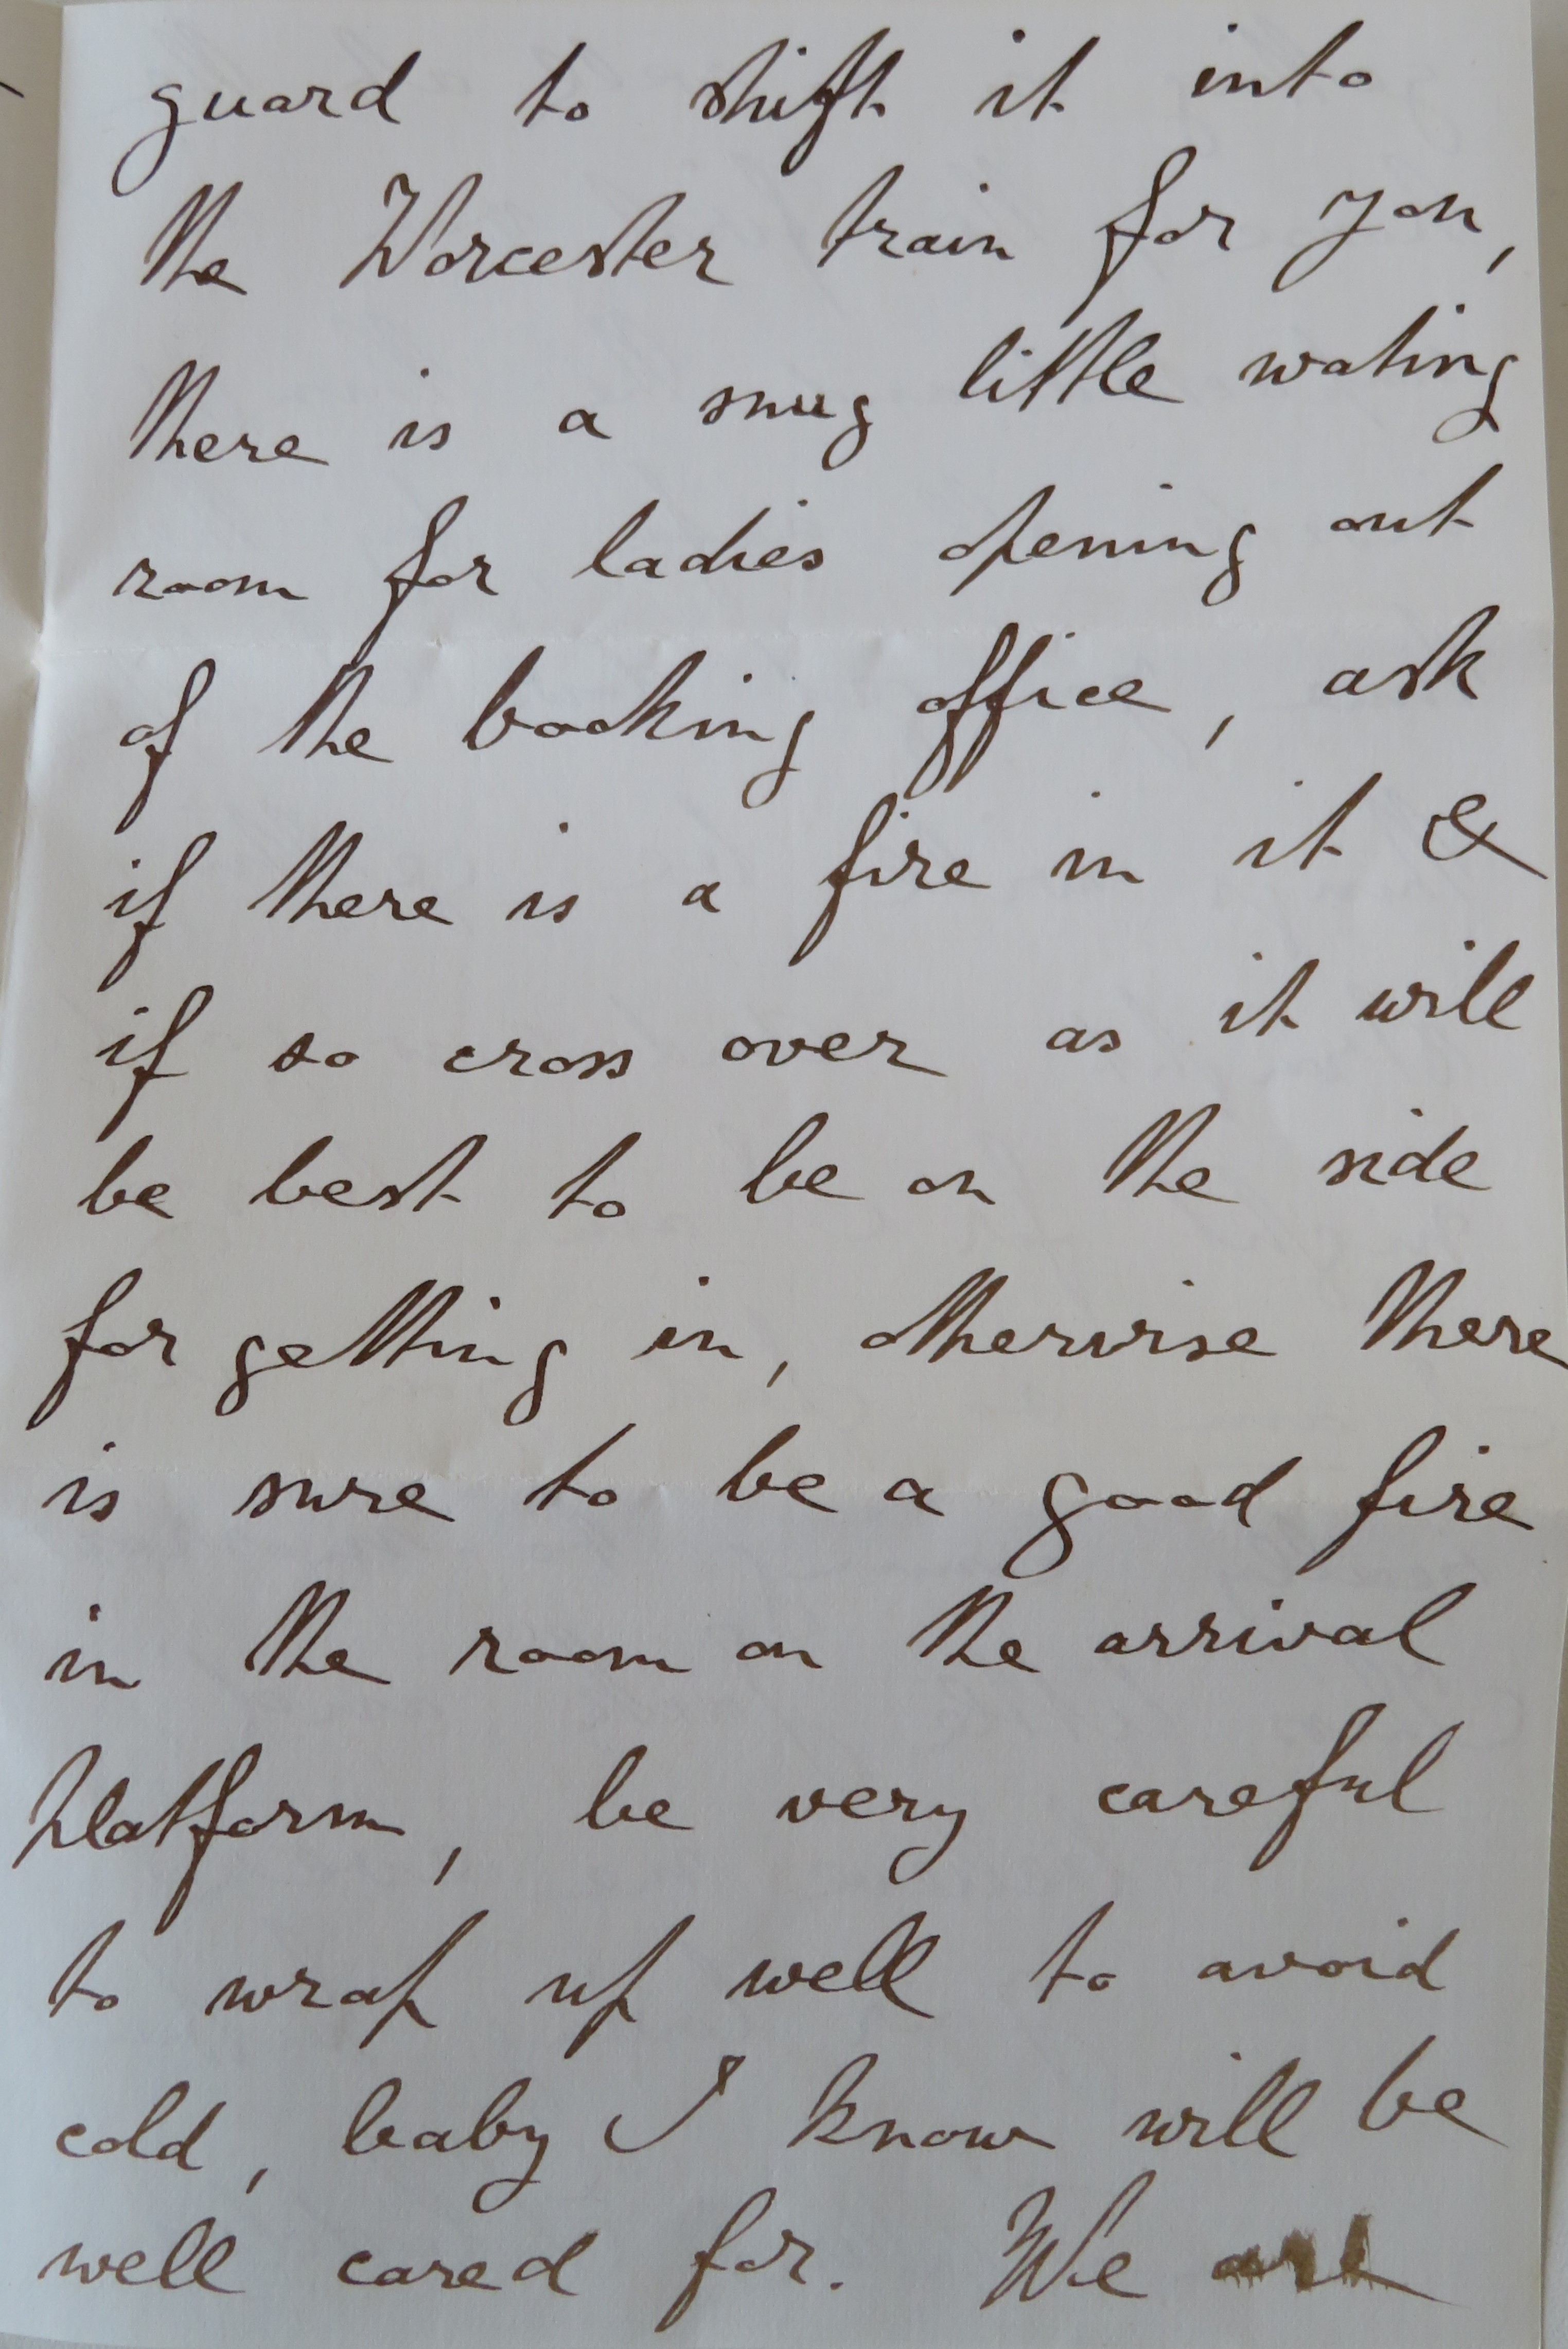 guard to shift it into
the Worcester train for you,
there is a snug little wating
room for ladies opening out
of the booking office, ask
if there is a fire in it &
if so cross over as it will
be best to be on the side
for getting in, otherwise there
is sure to be a good fire
in the room on the arrival
platform, be very careful
to wrap up well to avoid
cold, baby I know will be
well cared for. We are